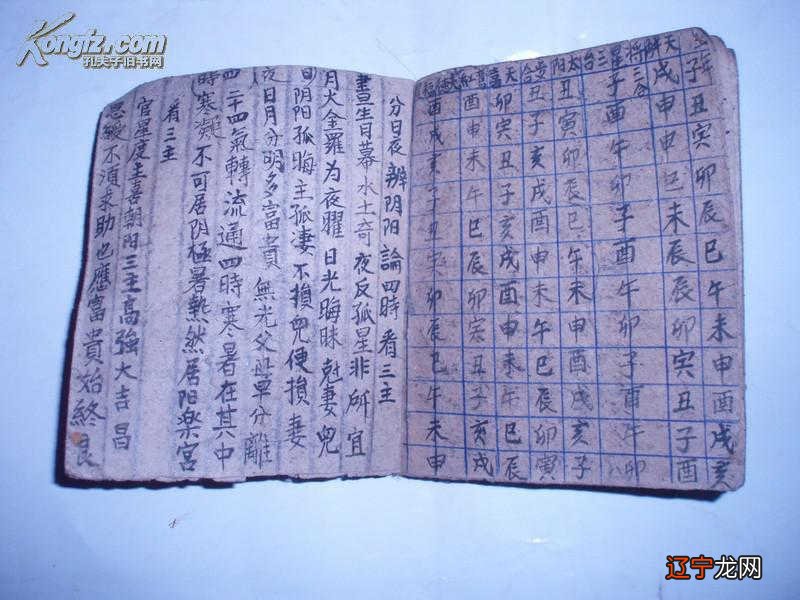 子丑寅卯辰巳午未申酉戌亥
天解戌申申巳未辰辰卯寅丑子酉
子酉午卯子酉午卯子酉午卯
太阳丑寅卯辰巳午未申酉戌亥子
丑子亥戌酉申未午巳辰卯寅
天喜卯寅丑子亥戌酉申未午巳辰
酉申未午巳辰卯寅丑子亥戌
酉戌亥子丑寅卯辰巳午未申
分日夜辨阴阳論四時看三主
晝生日暮水土奇夜反孤星非所宜
月火金羅为夜曜日光晦昧尅妻兒
日阴阳孤晦主孤凄不損兒便損妻
夜日月分明多富貴無光父母早分離
四二十四氣轉流通四時寒暑在其中
時寒凝不可居阴極暑热然居阳樂宫
看三主
官星度主喜朝阳三主高強大吉昌
恩不須求助也應富貴始終良
Kongfz.com
孔夫子旧书网
辽宁龙网